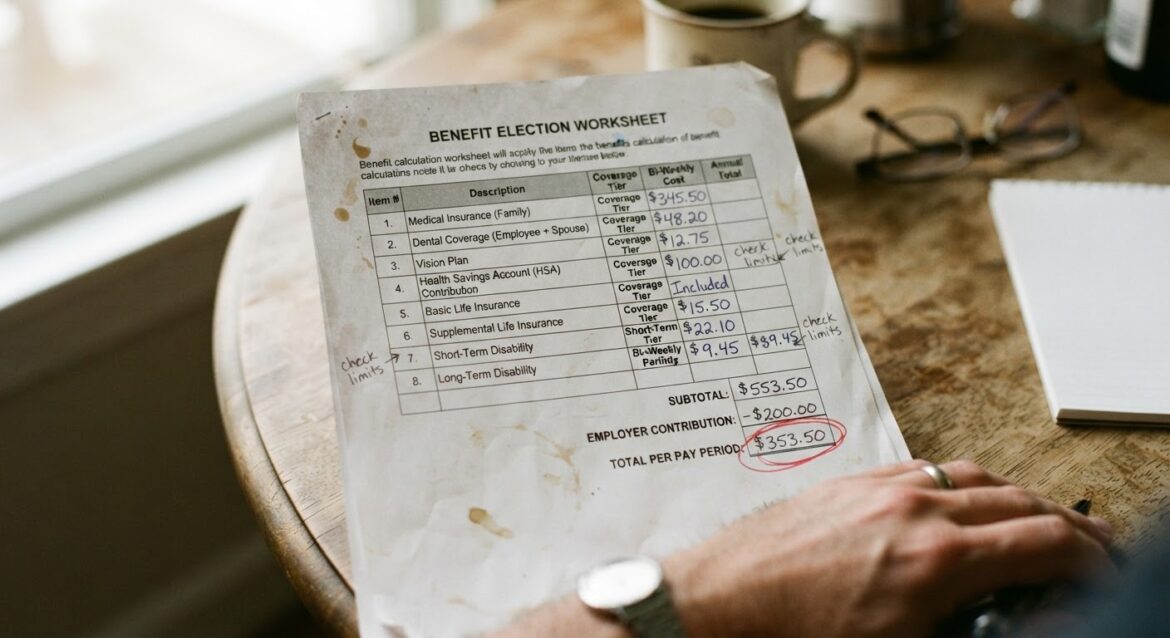 BENEFIT ELECTION WORKSHEET
Benefit calculation worksheet will the items the benefits calculation of benefit
calculations it by choosing to your
Item # Description Coverage Tier Bi-Weekly Cost Annual Total
1. Medical Insurance (Family) Coverage Tier $345.50
2. Dental Coverage (Employee + Spouse) Coverage Tier $48.20
3. Vision Plan Coverage Tier $12.75
4. Health Savings Account (HSA) Contribution Coverage Tier $100.00 check limits check limits
5. Basic Life Insurance Coverage Tier Included
6. Supplemental Life Insurance Coverage Tier $15.50
check limits 7. Short-Term Disability Short-Term Tier $22.10
8. Long-Term Disability Bi-Weekly $9.45 $89.45 check limits
SUBTOTAL: $553.50
EMPLOYER CONTRIBUTION: -$200.00
TOTAL PER PAY PERIOD: $353.50